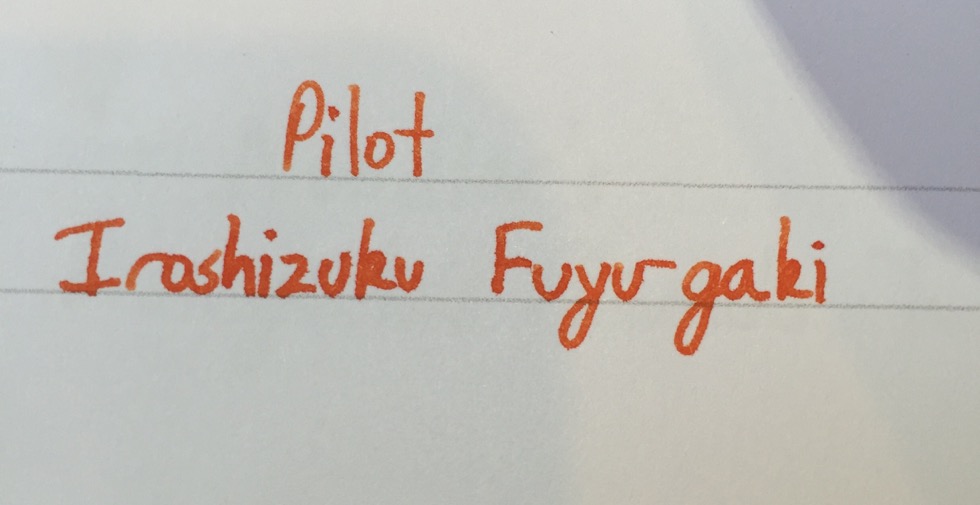 Pilot
Iroshizuku Fuyu-gaki